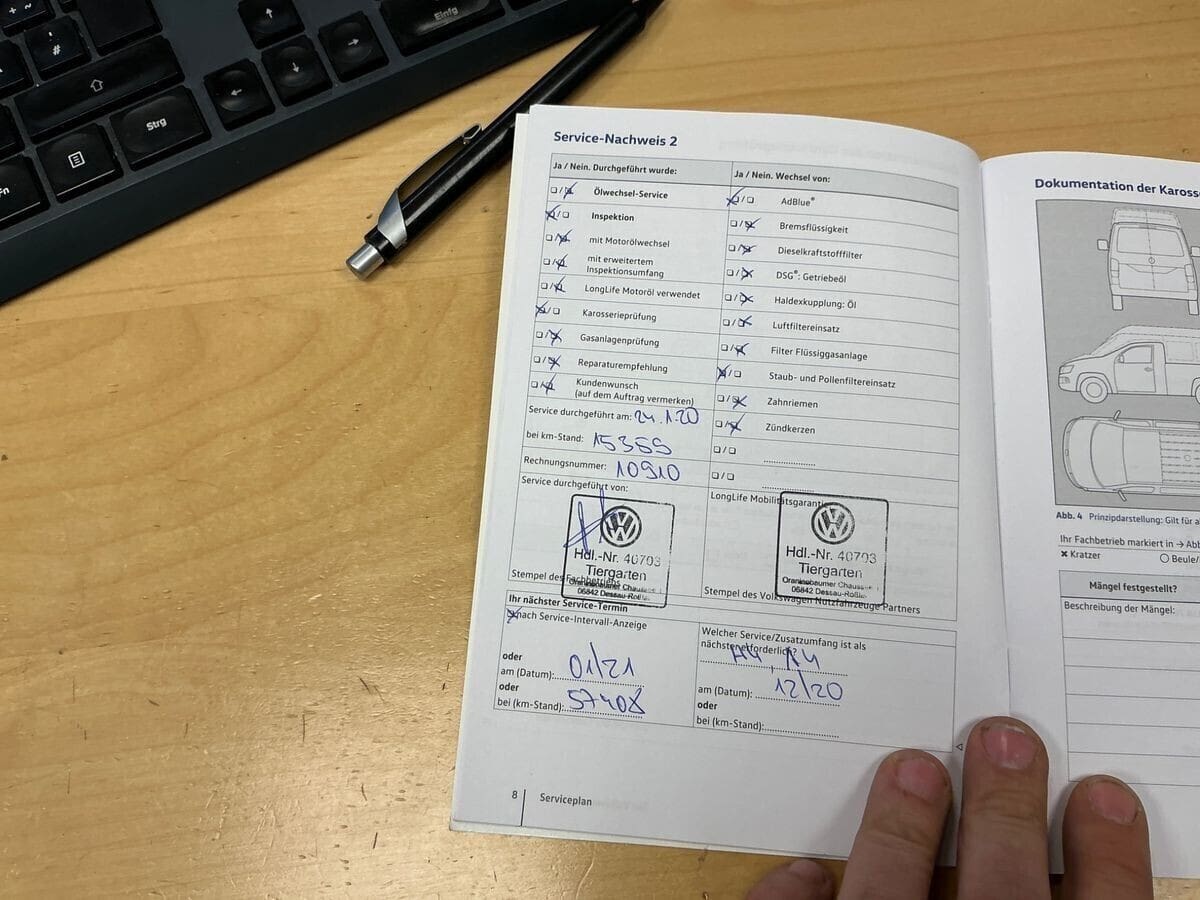 + ~
#
Einfg
Strg
Fn
Service-Nachweis 2
Ja / Nein. Durchgeführt wurde:
Ölwechsel-Service
Inspektion
mit Motorölwechsel
mit erweitertem
Inspektionsumfang
LongLife Motoröl verwendet
Karosserieprüfung
Gasanlagenprüfung
Reparaturempfehlung
Kundenwunsch
(auf dem Auftrag vermerken)
Service durchgeführt am: 24.1.20
bei km-Stand: 15355
Rechnungsnummer: 10910
Service durchgeführt von:
Hdl.-Nr. 40703
Tiergarten
Oranienbaumer Chaussee
06842 Dessau-Roßlau
Stempel des Fachbetriebs
Ja / Nein. Wechsel von:
AdBlue®
Bremsflüssigkeit
Dieselkraftstofffilter
DSG®: Getriebeöl
Haldexkupplung: Öl
Luftfiltereinsatz
Filter Flüssiggasanlage
Staub- und Pollenfiltereinsatz
Zahnriemen
Zündkerzen
LongLife Mobilitätsgarantie
Hdl.-Nr. 40703
Tiergarten
Oranienbaumer Chaussee
06842 Dessau-Roßlau
Stempel des Volkswagen Nutzfahrzeuge Partners
Ihr nächster Service-Termin
nach Service-Intervall-Anzeige
oder
am (Datum): 01/21
oder
bei (km-Stand): 57408
Welcher Service/Zusatzumfang ist als
nächster erforderlich?
am (Datum): 12/20
oder
bei (km-Stand):
8
Serviceplan
Dokumentation der Kaross
Abb. 4 Prinzipdarstellung: Gilt für a
Ihr Fachbetrieb markiert in → Abb
Kratzer
Beule/
Mängel festgestellt?
Beschreibung der Mängel: